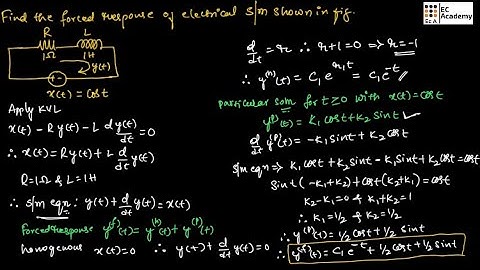 Find the forced response of electrical s/m shown in fig.
EC Academy
R L
1Ω 1H
y(t)
x(t) = cost
Apply KVL
x(t) - R y(t) - L d/dt y(t) = 0
∴ x(t) = R y(t) + L d/dt y(t)
R=1Ω & L=1H
∴ s/m eqn : y(t) + d/dt y(t) = x(t)
Forced response y^(f)(t) = y^(h)(t) + y^(p)(t)
homogenous x(t)=0 ∴ y(t) + d/dt y(t) = 0
d/dt = r ∴ r+1=0 => r=-1
∴ y^(h)(t) = C₁ e^(r₁t) = C₁ e^(-t)
particular soln for t≥0 with x(t)=cost
y^(p)(t) = K₁ cost + K₂ sint
d/dt y^(p)(t) = -K₁ sint + K₂ cost
s/m eqn => K₁ cost + K₂ sint - K₁ sint + K₂ cost = cost
sint (-K₁+K₂) + cost (K₂+K₁) = cost
K₂-K₁=0 & K₁+K₂=1
∴ K₁=1/2 & K₂=1/2
∴ y^(p)(t) = 1/2 cost + 1/2 sint
∴ y^(f)(t) = C₁e^(-t) + 1/2 cost + 1/2 sint